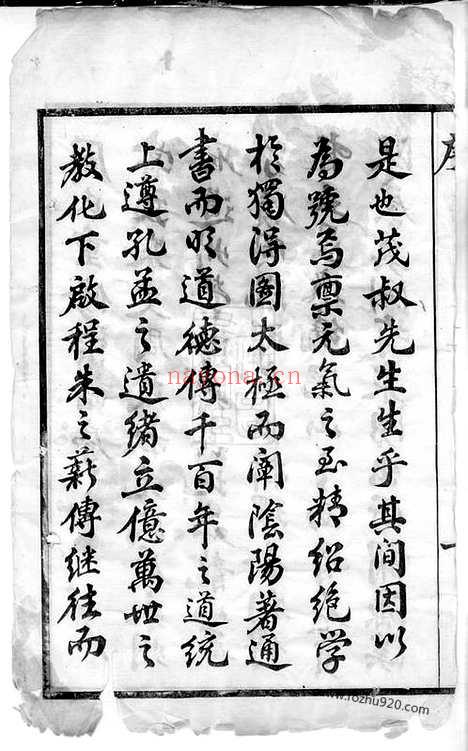 序
是也茂叔先生生乎其间因以
為號焉禀元氣之至精紹絶学
於獨得圖太極而阐陰陽著通
書而明道德傳千百年之道統
上遵孔孟之遺緒立億萬世之
教化下啟程朱之薪傳继往而
nayona.cn
www.fozhu920.com